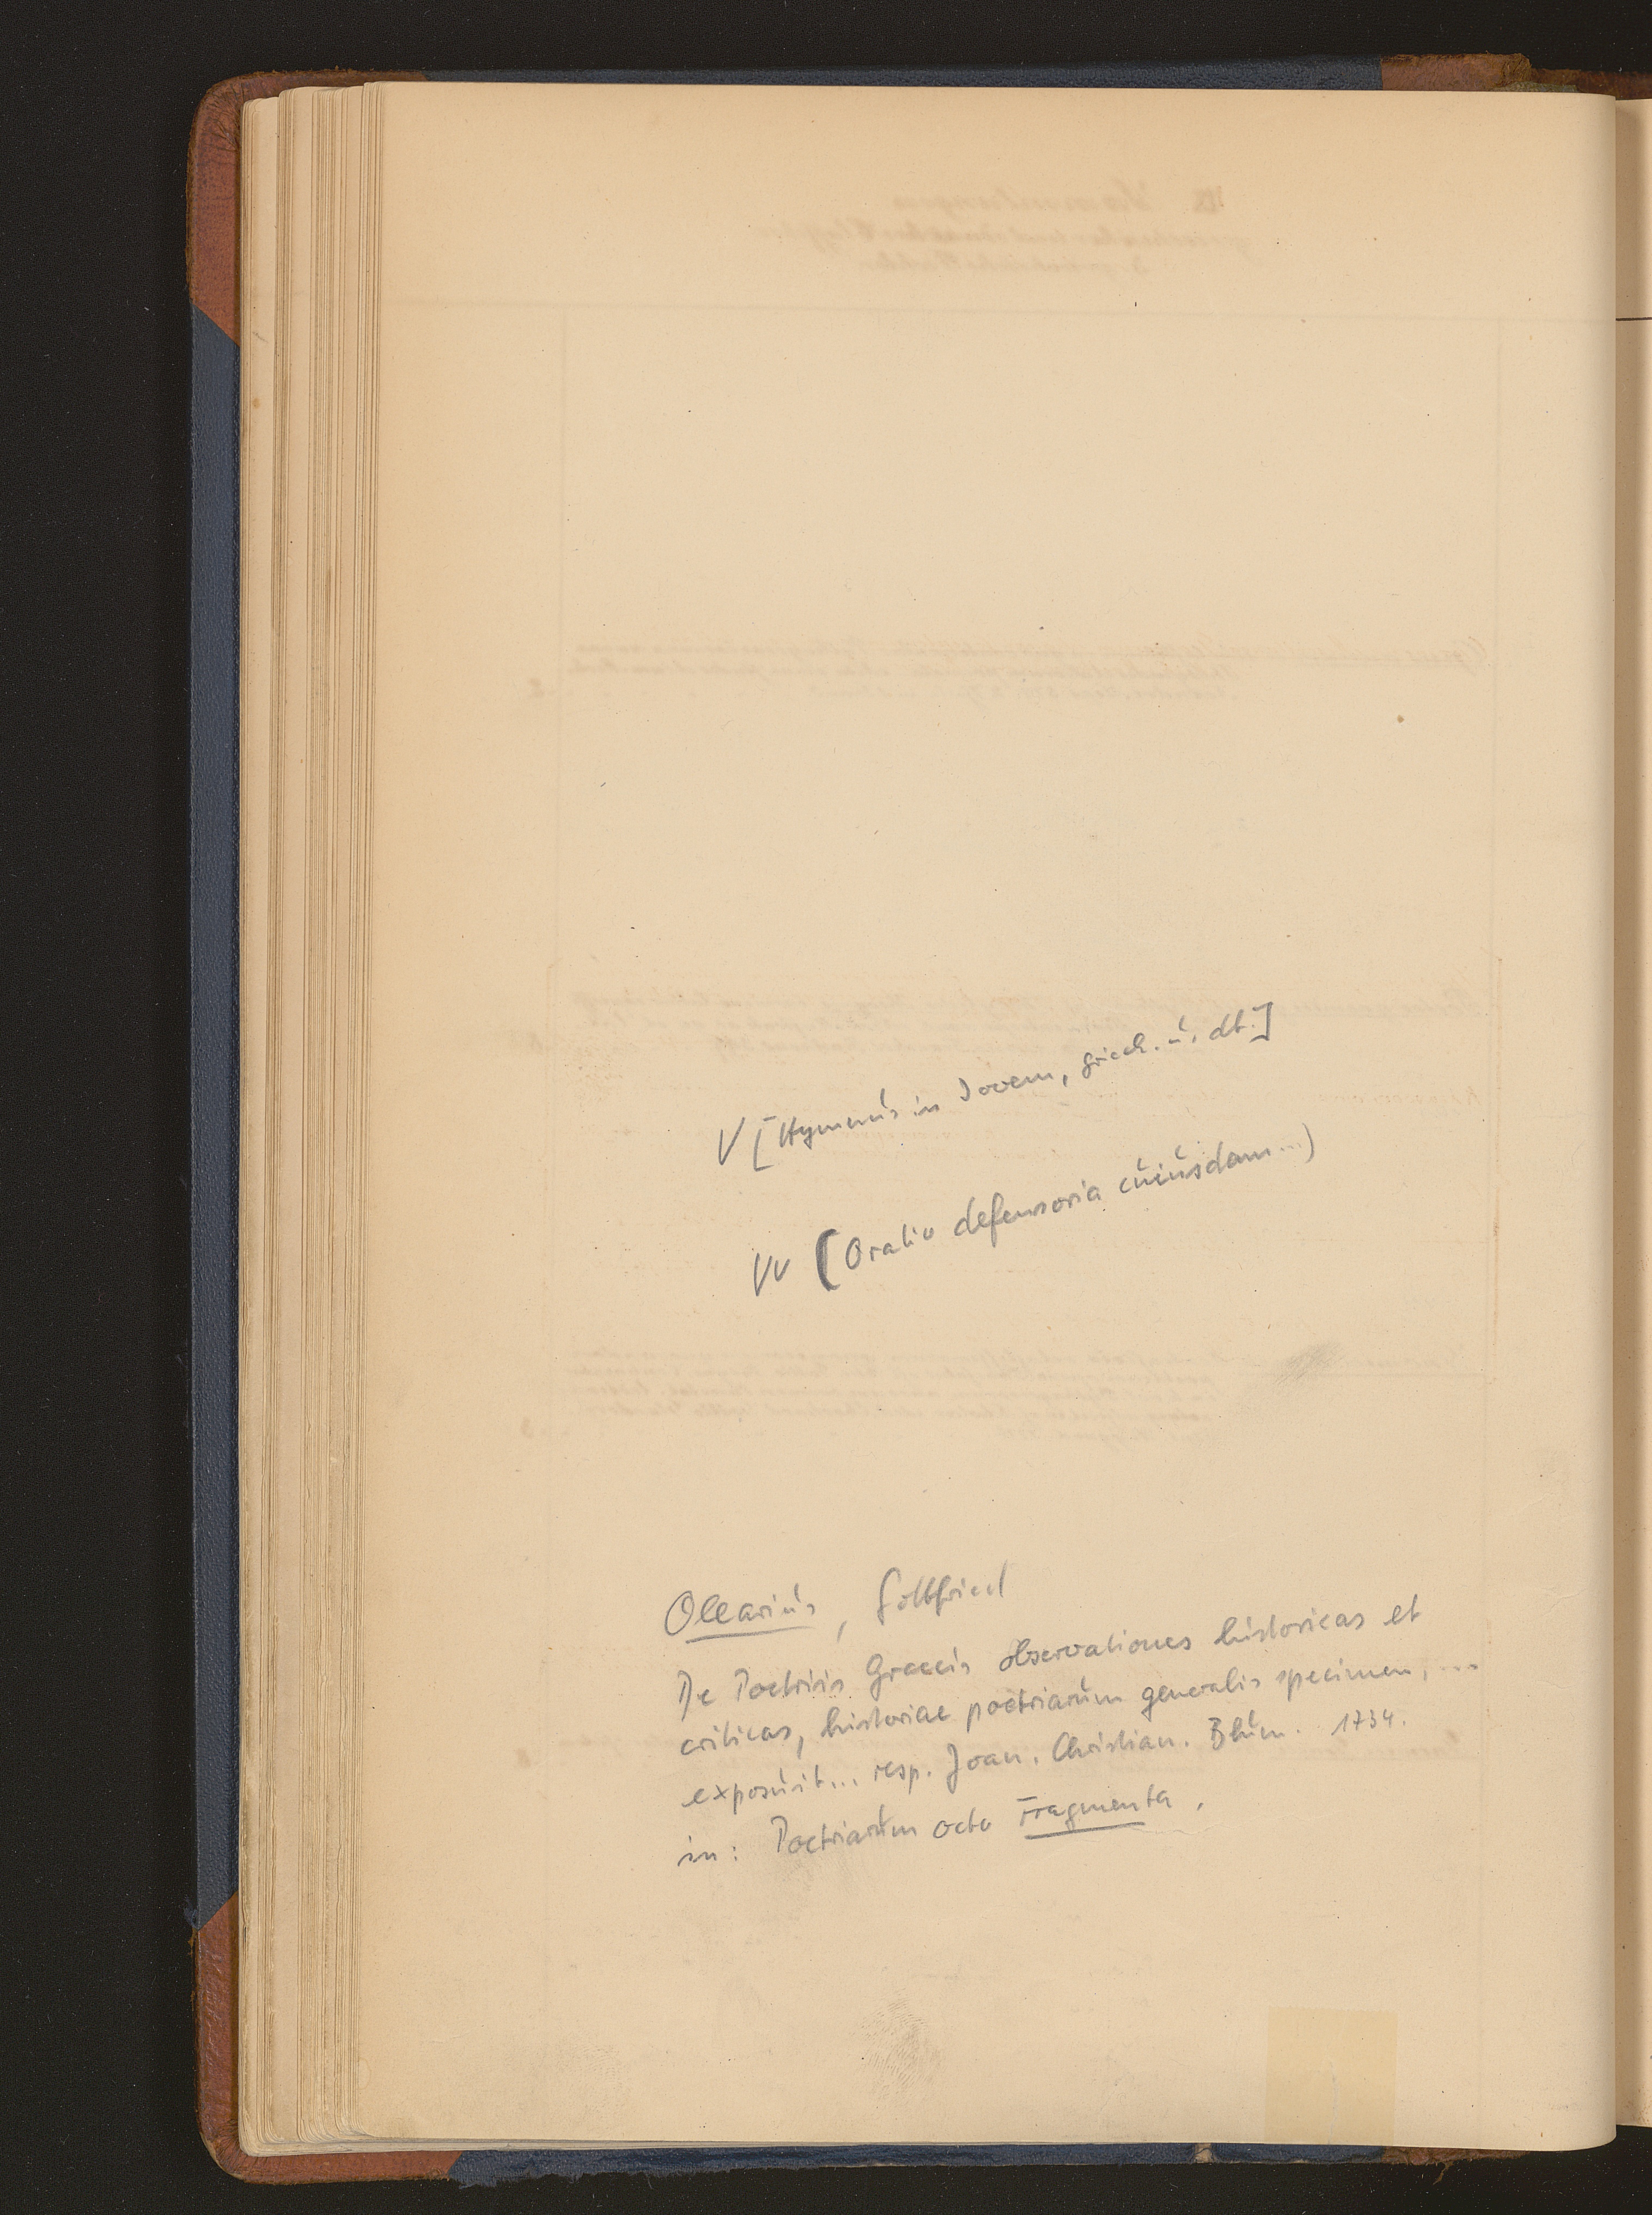 V [Hymnus in Jovem, griech. u. dt.]
VV (Oratio defensoria cuiusdam...)
Olearius, Gottfried
De Poetriis Graecis observationes historicas et
criticas, historiae poetriarum generalis specimen, ...
exposuit... resp. Joan. Christian. Blum. 1734.
in: Poetriarum octo Fragmenta.